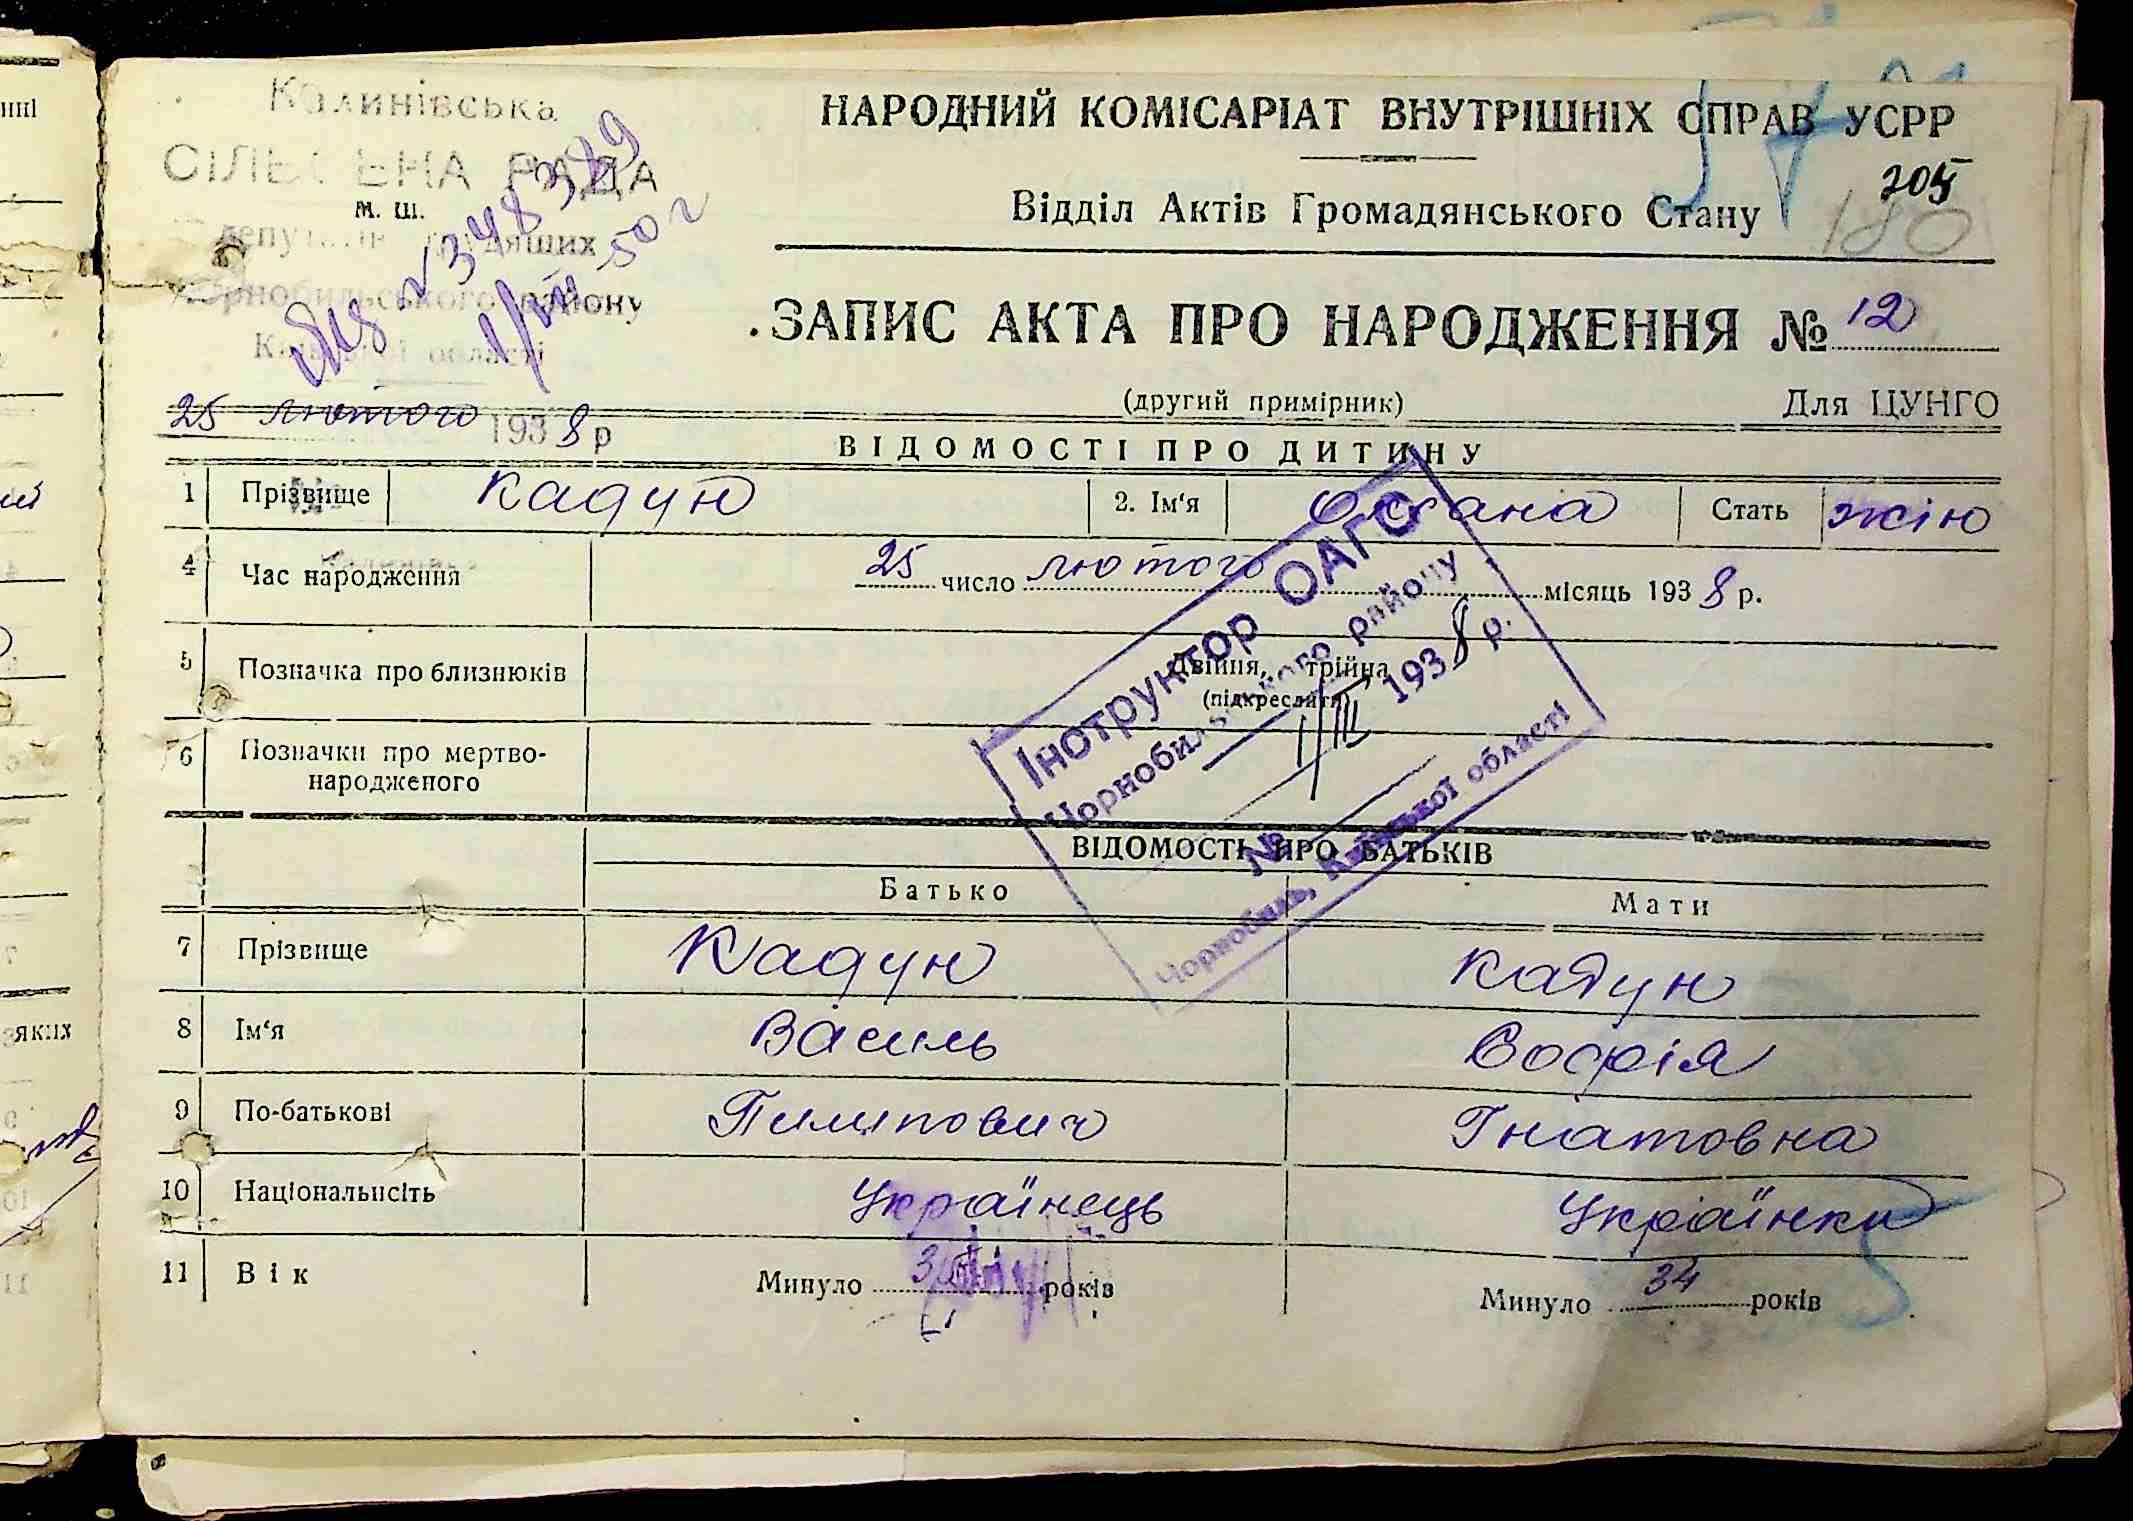 Калинівська
СІЛЬСЬКА РАДА
м. ш.
депутатів трудящих
Чорнобильського району
Київської області
№ 348389
1/VII 50 г
НАРОДНИЙ КОМІСАРІАТ ВНУТРІШНІХ СПРАВ УСРР
Відділ Актів Громадянського Стану
205
180
ЗАПИС АКТА ПРО НАРОДЖЕННЯ № 12
(другий примірник)
Для ЦУНГО
25 лютого 1938 р
ВІДОМОСТІ ПРО ДИТИНУ
1 Прізвище Кадун 2. Ім'я Оксана Стать жіно
4 Час народження 25 число лютого місяць 1938 р.
5 Позначка про близнюків Двійня, трійна
(підкреслити)
6 Позначки про мертво-
народженого
Інструктор ОАГС
Чорнобильського району
1/III 1938 р.
№
Чорнобиль, Київської області
ВІДОМОСТІ ПРО БАТЬКІВ
Батько Мати
7 Прізвище Кадун Кадун
8 Ім'я Василь Софія
9 По-батькові Пилипович Гнатовна
10 Національність Українець Українка
11 Вік Минуло років Минуло 34 років
яких